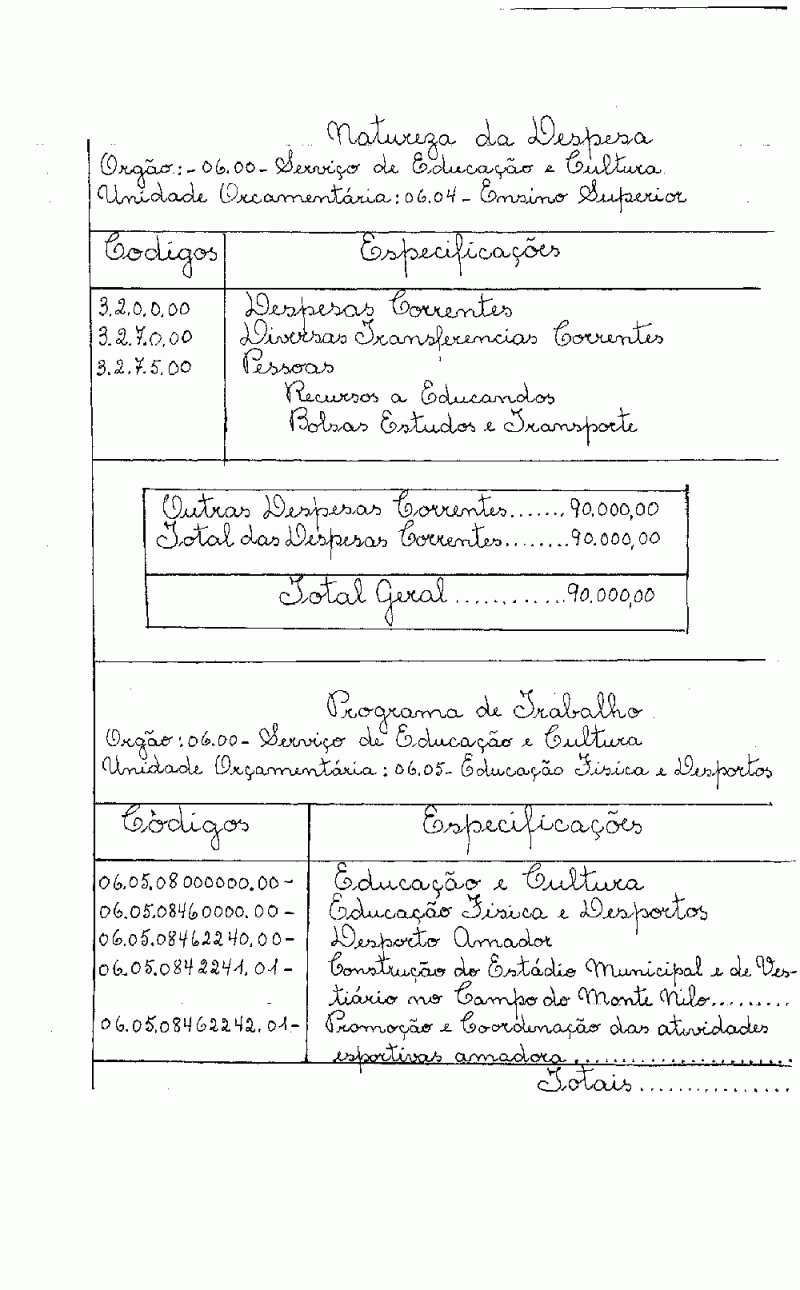 Natureza da Despesa
Orgão:-06.00-Serviço de Educação e Cultura
Unidade Orcamentária:06.04-Ensino Superior
Codigos Especificações
3.2.0.0.00 Despesas Correntes
3.2.7.0.00 Diversas Transferencias Correntes
3.2.7.5.00 Pessoas
Recursos a Educandos
Bolsas Estudos e Transporte
Outras Despesas Correntes.......90.000,00
Total das Despesas Correntes........90.000,00
Total Geral............90.000,00
Programa de Trabalho
Orgão:06.00-Serviço de Educação e Cultura
Unidade Orçamentária:06.05-Educação Fisica e Desportos
Còdigos Especificações
06.05.08000000.00- Educação e Cultura
06.05.08460000.00- Educação Fisica e Desportos
06.05.08462240.00- Desporto Amador
06.05.0842241.01- Construção do Estádio Municipal e de Ves-
tiário no Campo do Monte Nilo.........
06.05.08462242.01- Promoção e Coordenação das atividades
esportivas amadora......................
Totais................